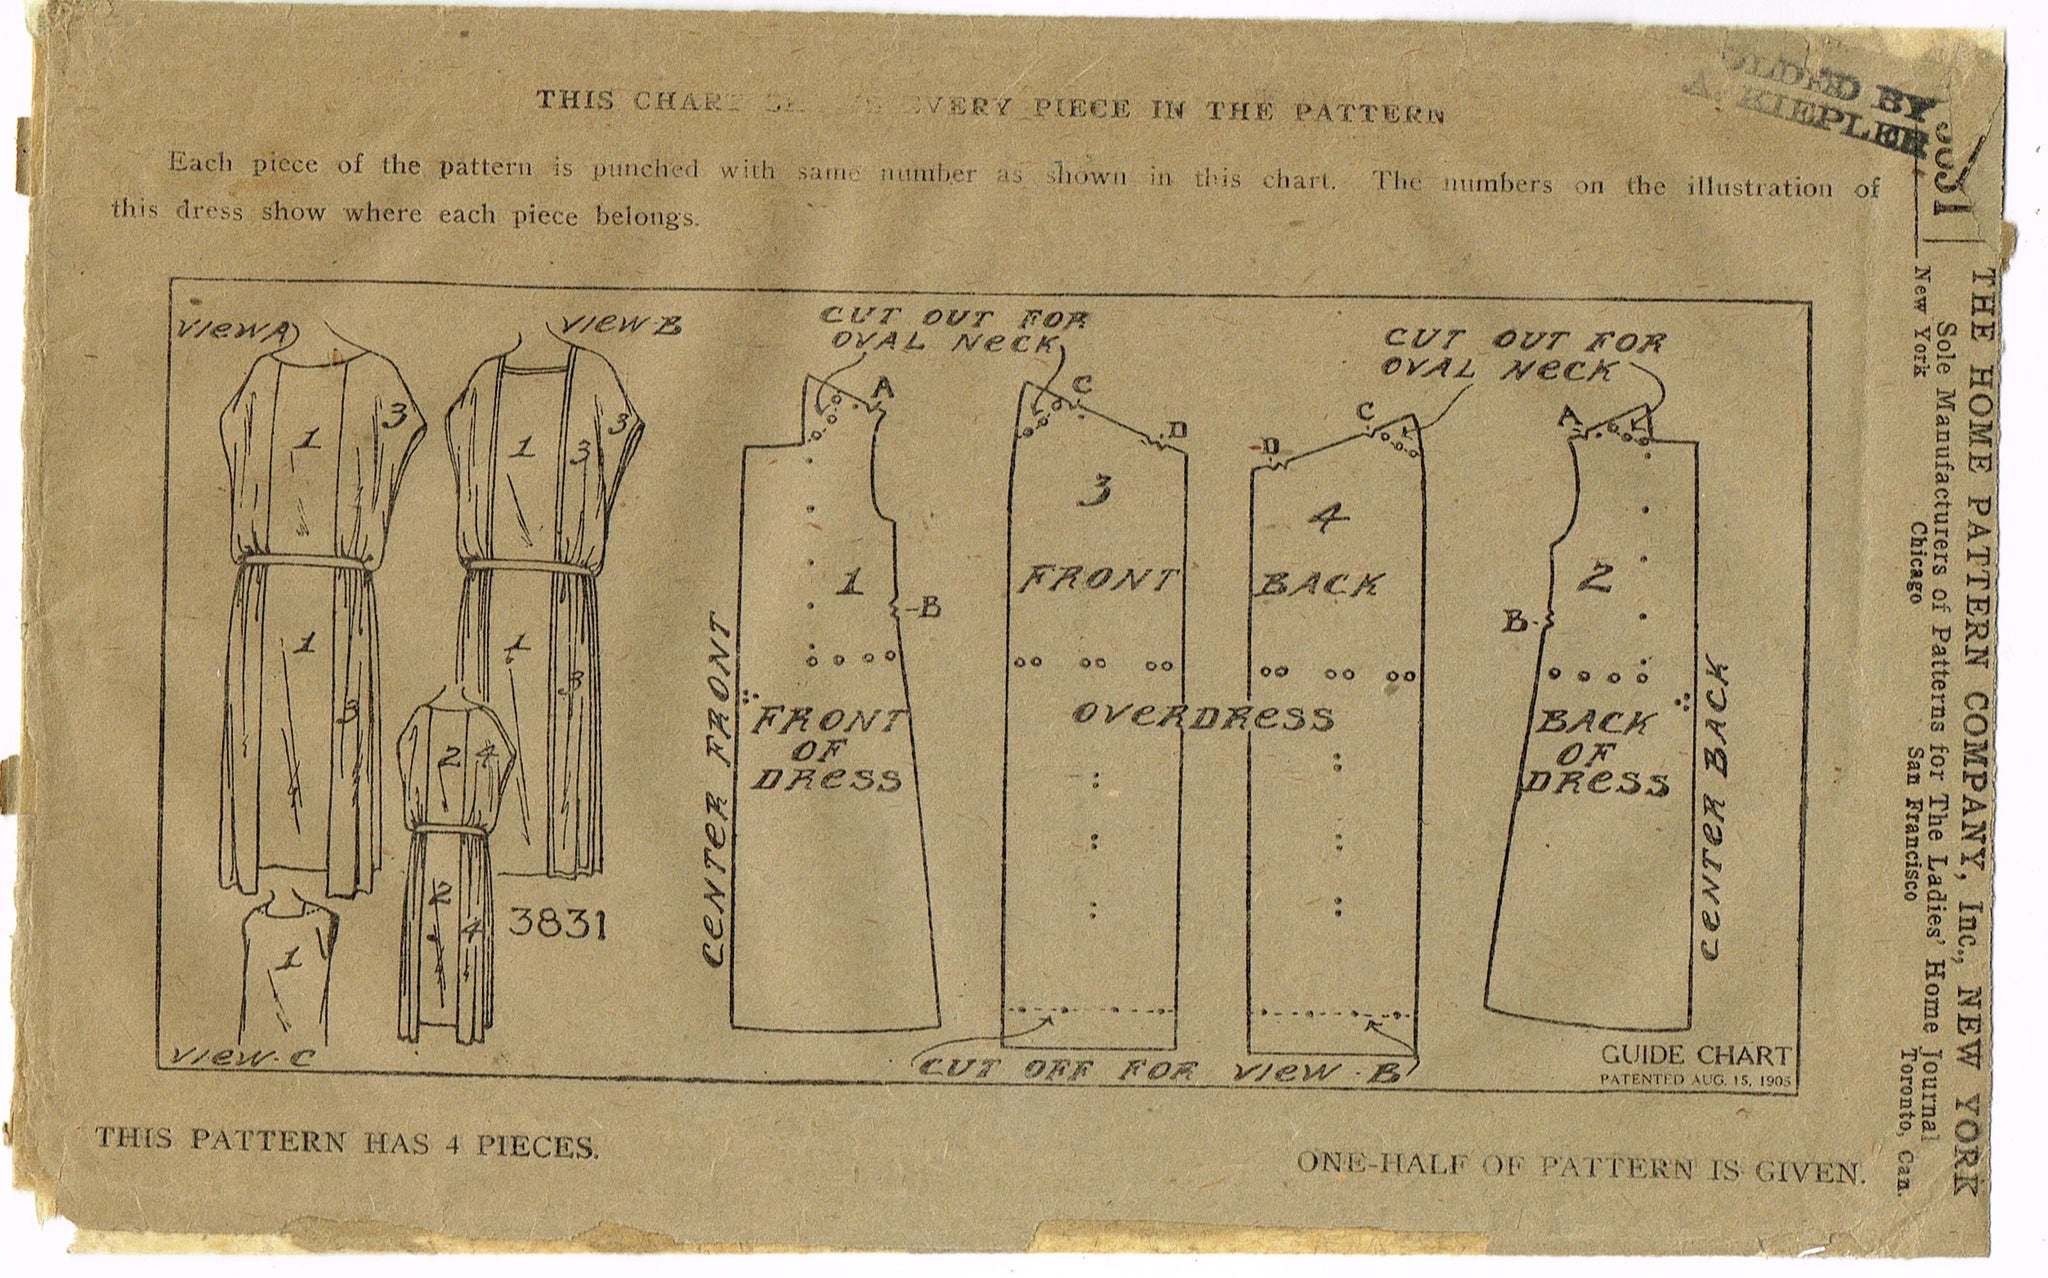 THIS CHART EVERY PIECE IN THE PATTERN
Each piece of the pattern is punched with same number as shown in this chart. The numbers on the illustration of
this dress show where each piece belongs.
VIEW A
VIEW B
1
3
1
3
3
1
3
1
3
2
4
2
4
3831
1
VIEW-C
CUT OUT FOR
OVAL NECK
CUT OUT FOR
OVAL NECK
A
1
B
CENTER FRONT
FRONT
OF
DRESS
C
D
3
FRONT
D
C
4
BACK
OVERDRESS
A
2
B
BACK
OF
DRESS
CENTER BACK
CUT OFF FOR VIEW-B
GUIDE CHART
PATENTED AUG. 15, 1905
THIS PATTERN HAS 4 PIECES.
ONE-HALF OF PATTERN IS GIVEN.
BY
A. KIEPLER
THE HOME PATTERN COMPANY, Inc., NEW YORK
Sole Manufacturers of Patterns for The Ladies' Home Journal
New York Chicago San Francisco Toronto, Can.